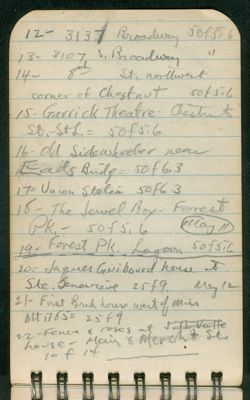 12- 3137 Broadway 50f5.6
13- 3107 S. Broadway "
14- 8th St. northwest
corner of Chestnut 50f5.6
15- Garrick Theatre- Chestnut
St., St L. = 50f5.6
16- Old Sidewheeler near
Eads Bridge- 50f6.3
17= Union Station 50f6.3
18- The Jewel Box- Forest
Pk,- 50f5.6 May 11
19- Forest Pk. Lagoon 50f5.6
20- Jaques Guibourd house at
Ste. Genevieve 25f9. May 12
21- First Brick house west of Miss
1785= 25f9
22- Fence & roses at
house- Main & Merch't Sts
10 f 14